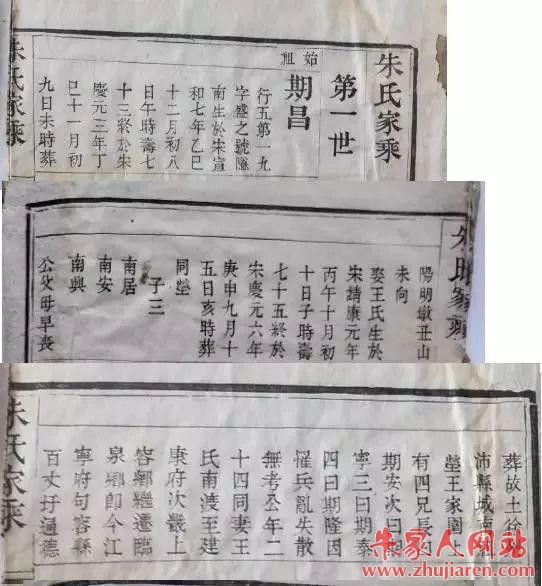 朱氏家乘
第一世
始祖
期昌
行五第一九
字盛之號隱
南生於宋宣
和七年乙巳
十二月初八
日午時壽七
十三終於宋
慶元三年丁
巳十一月初
九日未時葬
朱氏家乘
陽明墩丑山
未向
娶王氏生於
宋靖康元年
丙午十月初
十日子時壽
七十五終於
宋慶元六年
庚申九月十
五日亥時葬
同塋
子三
南居
南安
南興
公父母早喪
葬故土徐
沛縣城南
塋王家園
有四兄長曰
期安次曰期
寧三曰期泰
四曰期隆因
罹兵亂失散
無考公年二
十四同妻王
氏南渡至建
康府次義上
容鄉繼遷臨
泉鄉即今江
寧府句容縣
百丈圩通德
朱氏家乘
朱家人网站
www.zhujiaren.com